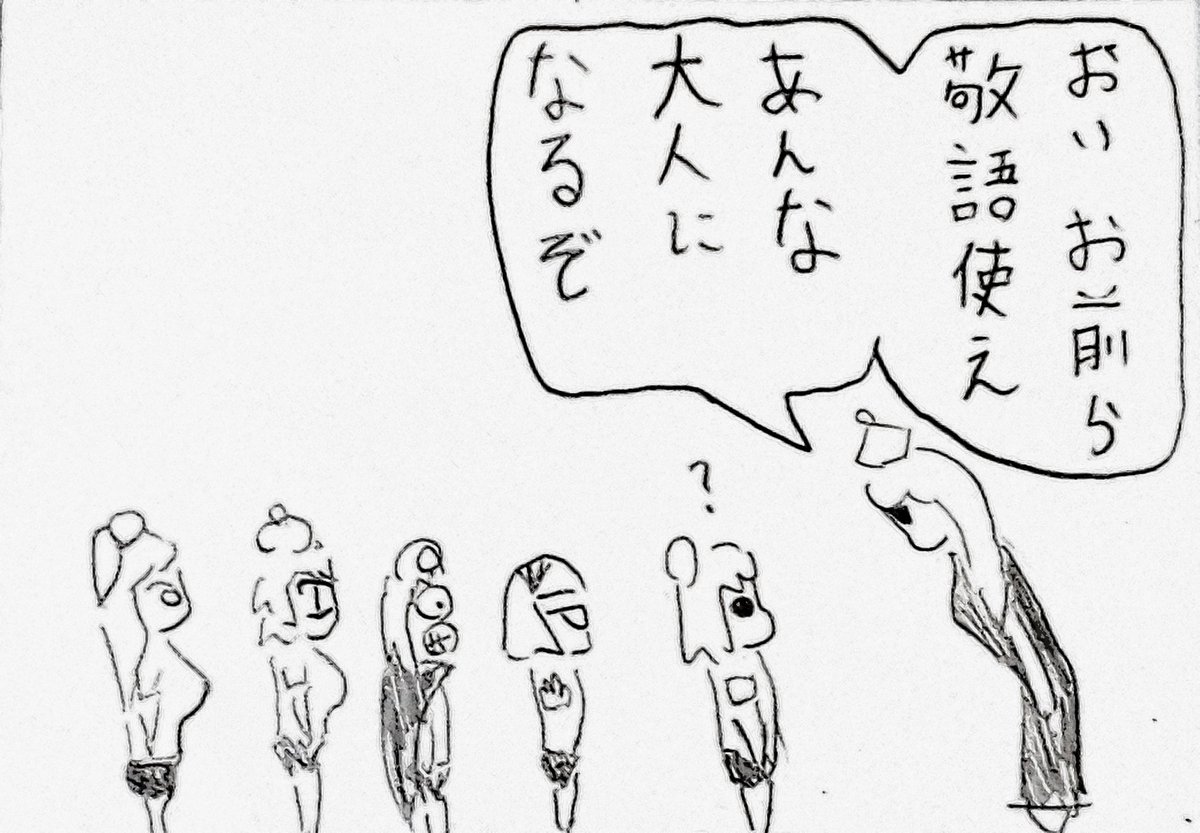 おい お前ら
敬語使え
あんな
大人に
なるぞ
?